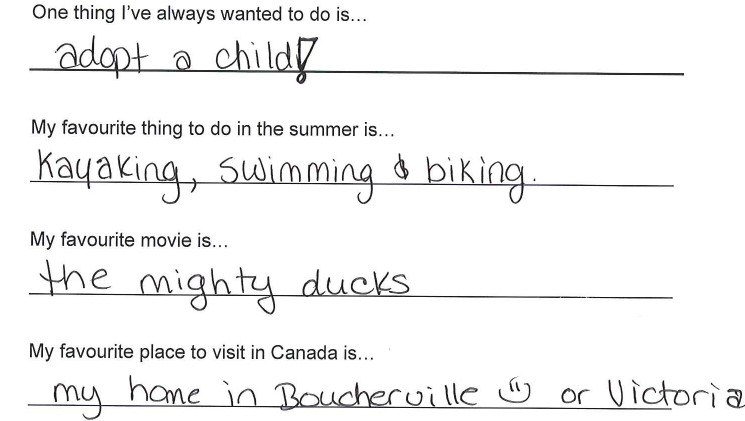 One thing I've always wanted to do is...
adopt a child!
My favourite thing to do in the summer is...
Kayaking, swimming & biking.
My favourite movie is...
the mighty ducks
My favourite place to visit in Canada is...
my home in Boucherville or Victoria